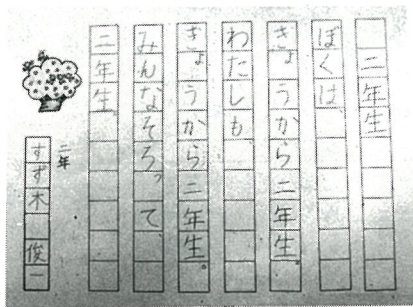 二年生
ぼくは、
きょうから二年生。
わたしも、
きょうから二年生。
みんなそろって、
二年生。
二年
すず木 俊一